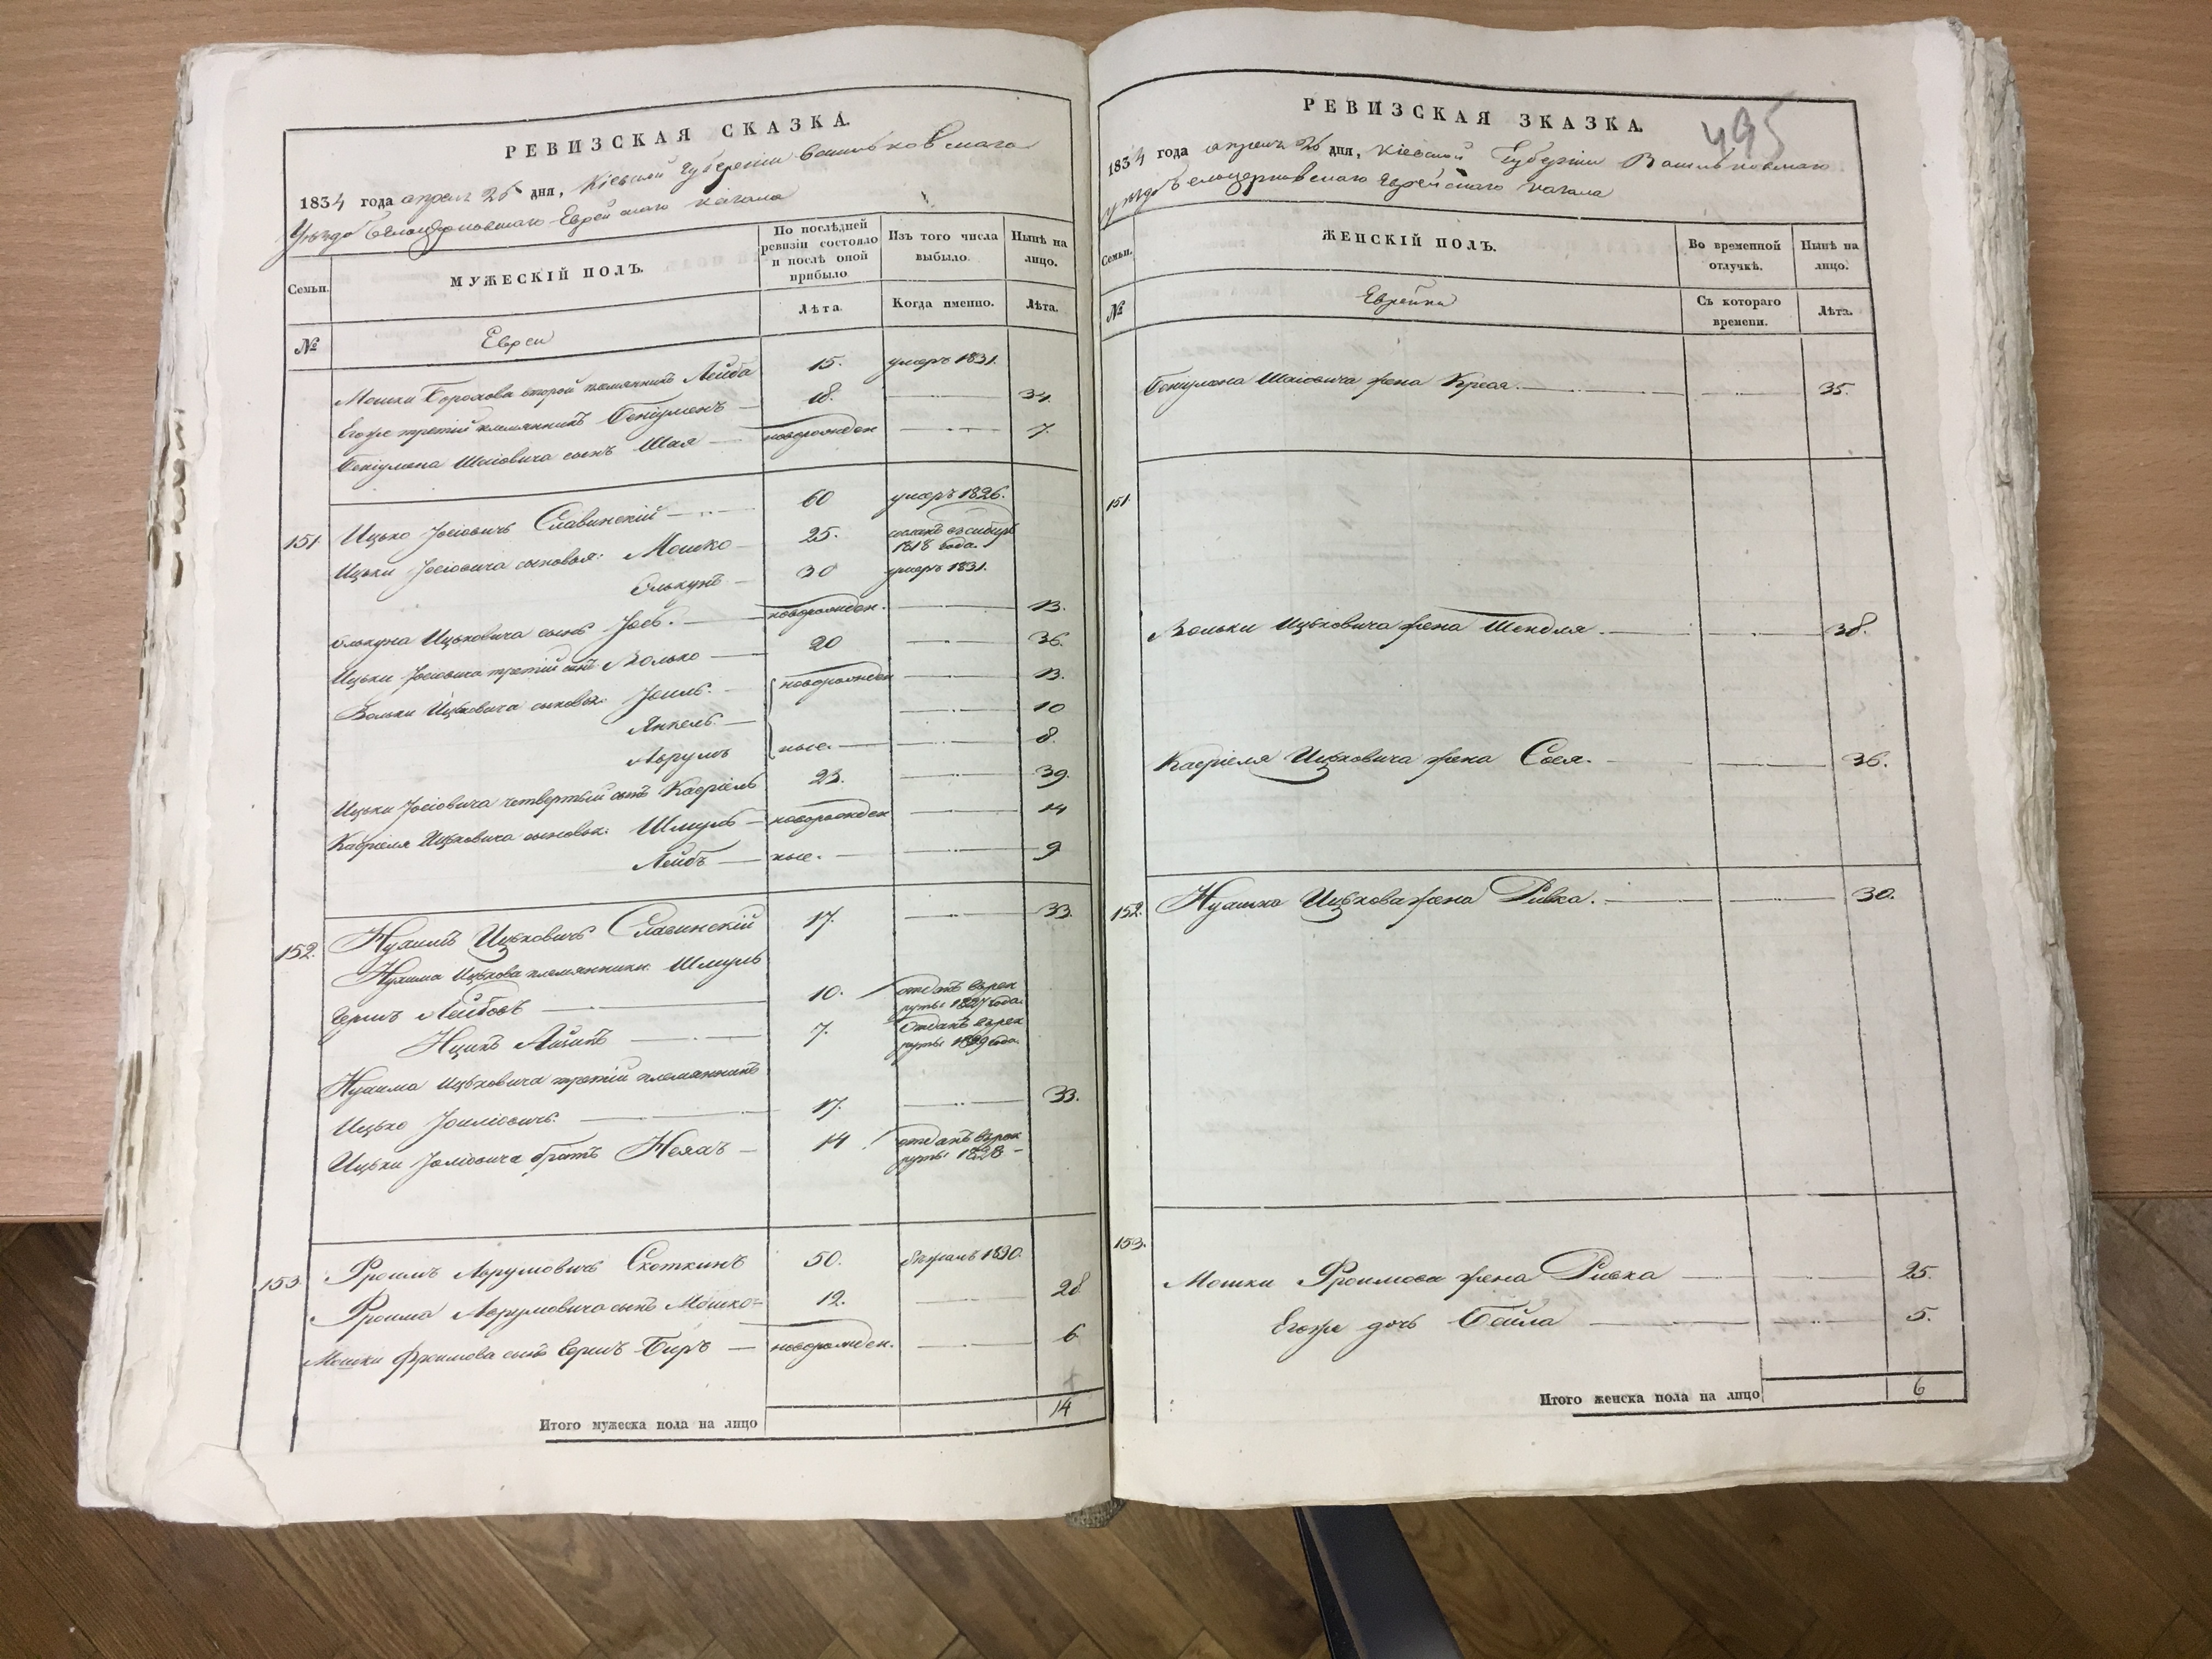 РЕВИЗСКАЯ СКАЗКА.
1834 года апреля 26 дня, Кіевской Губерніи Васильковскаго
Уѣзда Бѣлоцерковскаго Еврейскаго кагала
Семьи.
МУЖЕСКІЙ ПОЛЪ.
По послѣдней ревизіи состояло и послѣ оной прибыло.
Изъ того числа выбыло.
Нынѣ на лицо.
№
Евреи
Лѣта.
Когда именно.
Лѣта.
Мошки Борохова второй племянникъ Лейба 15. умеръ 1831.
Егоже третій племянникъ 18. 34.
сынъ Шая новорожден 7.
151 Ицько Іосіовичъ Славинскій 60 умеръ 1826.
Ицьки Іосіовича сыновья: Мошко 25. сосланъ в сибирь 1818 года.
Элькунъ 30 умеръ 1831.
Элькуна Ицьковича сынъ Іось. новорожден. 13.
Ицьки Іосіовича третій сынъ Волько 20 36.
Вольки Ицьковича сыновья: Іоиль. новорожден 13.
Янкель. 10
Аврумъ ные. 8.
Ицьки Іосіовича четвертый сынъ Кабріель 23. 39.
Кабріеля Ицьковича сыновья: Шмуль новорожден 14
Лейбъ ные. 9
152. Нухимъ Ицьковичъ Славинскій 17. 33.
Нухима Ицькова племянники: Шмуль
Гершъ Лейбовъ 10. отданъ в рек
руты 1827 года.
Ицикъ 7. Отданъ в рек
руты 1829 года.
Нухима Ицьковича третій племянникъ
Ицько Іоиліовичъ. 17. 33.
Ицьки Іоиліовича братъ 14 отданъ в рек
руты 1828
153 Фроимъ Аврумовичъ Скоткинъ 50. 1830.
Фроима Аврумовича сынъ Мошко 12. 28
Мошки Фроимова сынъ Герш Беръ новорожден. 6
Итого мужеска пола на лицо 14
495
РЕВИЗСКАЯ ЗКАЗКА.
1834 года апреля 26 дня, Кіевской Губерніи Васильковскаго
уѣзда Белоцерковскаго Еврейскаго кагала
Семьи.
ЖЕНСКІЙ ПОЛЪ.
Во временной отлучкѣ.
Нынѣ на лицо.
№
Еврейки
Съ котораго времени.
Лѣта.
Шаіовича жена 35.
151.
Вольки Ицьковича жена Шендля. 38.
Кабріеля Ицьковича жена Сося. 36.
152. Ицькова жена Ривка. 30.
153.
Мошки Фроимова жена Ривка 25.
Егоже дочь Бейла 5.
Итого женска пола на лицо 6